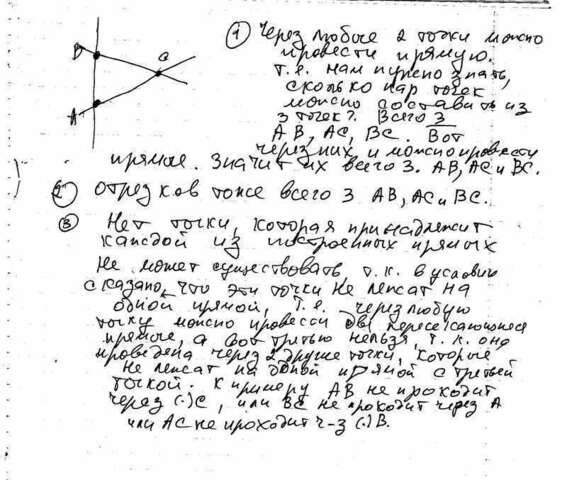 В
С
А
① Через любые 2 точки можно
провести прямую.
т.е. нам нужно знать,
сколько пар точек
можно составить из
3 точек? Всего 3
АВ, АС, ВС. Вот
через них и можно провести
прямые. Значит их всего 3. АВ, АС и ВС.
② Отрезков тоже всего 3 АВ, АС и ВС.
③ Нет точки, которая принадлежит
каждой из построенных прямых
Не может существовать, т.к. в условии
сказано, что эти точки не лежат на
одной прямой, т.е. через любую
точку можно провесси две пересекающиеся
прямые, а вот третью нельзя, т.к. она
проведена через 2 другие точки, которые
не лежат на одной прямой с третьей
точкой. К примеру АВ не проходит
через (.) С, или ВС не проходит через А
или АС не проходит ч-з (.) В.